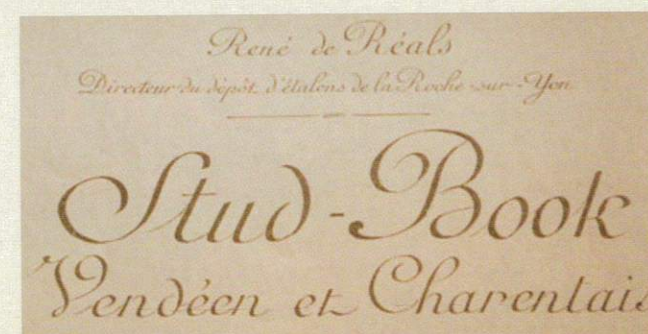 René de Réals
Directeur du dépôt d'étalons de la Roche-sur-Yon
Stud-Book
Vendéen et Charentais